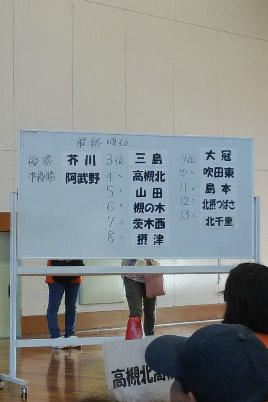 最終順位
優勝 芥川
準優勝 阿武野
3位 三島
4〃 高槻北
5〃 山田
6〃 槻の木
7〃 茨木西
8〃 摂津
9位 大冠
10〃 吹田東
11〃 島本
12〃 北摂つばさ
13〃 北千里
高槻北高